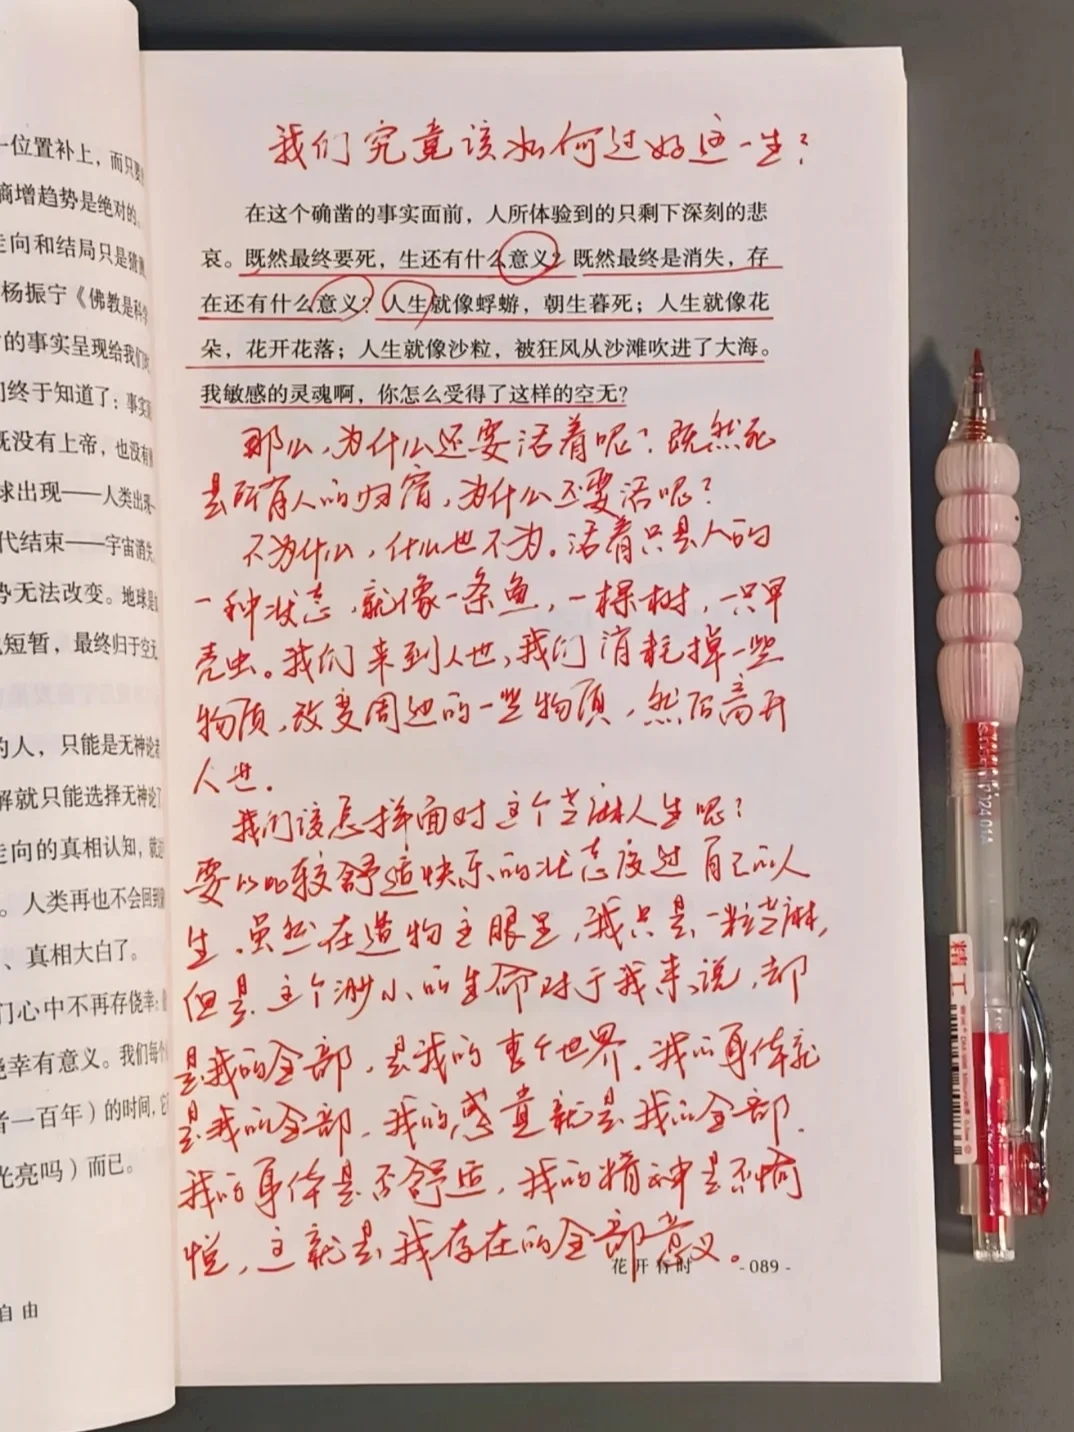 一位置补上，而只要
熵增趋势是绝对的、
走向和结局只是猜测
杨振宁《佛教是科学
的事实呈现给我们
们终于知道了：事实
既没有上帝，也没有
球出现——人类出现—
代结束——宇宙消失
势无法改变。地球是
短暂，最终归于空无
的人，只能是无神论者
解就只能选择无神论了
走向的真相认知，就
。人类再也不会回到
、真相大白了。
们心中不再存侥幸：
侥幸有意义。我们每个
者一百年）的时间，它
光亮吗）而已。
自由
我们究竟该如何过好这一生？
在这个确凿的事实面前，人所体验到的只剩下深刻的悲
哀。既然最终要死，生还有什么意义？既然最终是消失，存
在还有什么意义？人生就像蜉蝣，朝生暮死；人生就像花
朵，花开花落；人生就像沙粒，被狂风从沙滩吹进了大海。
我敏感的灵魂啊，你怎么受得了这样的空无？
那么，为什么还要活着呢？既然死
是所有人的归宿，为什么还要活呢？
不为什么，什么也不为。活着只是人的
一种状态，就像一条鱼，一棵树，一只甲
壳虫。我们来到人世，我们消耗掉一些
物质，改变周边的一些物质，然后离开
人世。
我们该怎样面对这个芝麻人生呢？
要以比较舒适快乐的状态度过自己的人
生。虽然在造物主眼里，我只是一粒芝麻，
但是，这个渺小的生命对于我来说，却
是我的全部，是我的整个世界。我的身体就
是我的全部，我的感觉就是我的全部。
我的身体是否舒适，我的精神是否愉
悦，这就是我存在的全部意义。
花开有时 - 089 -
精工